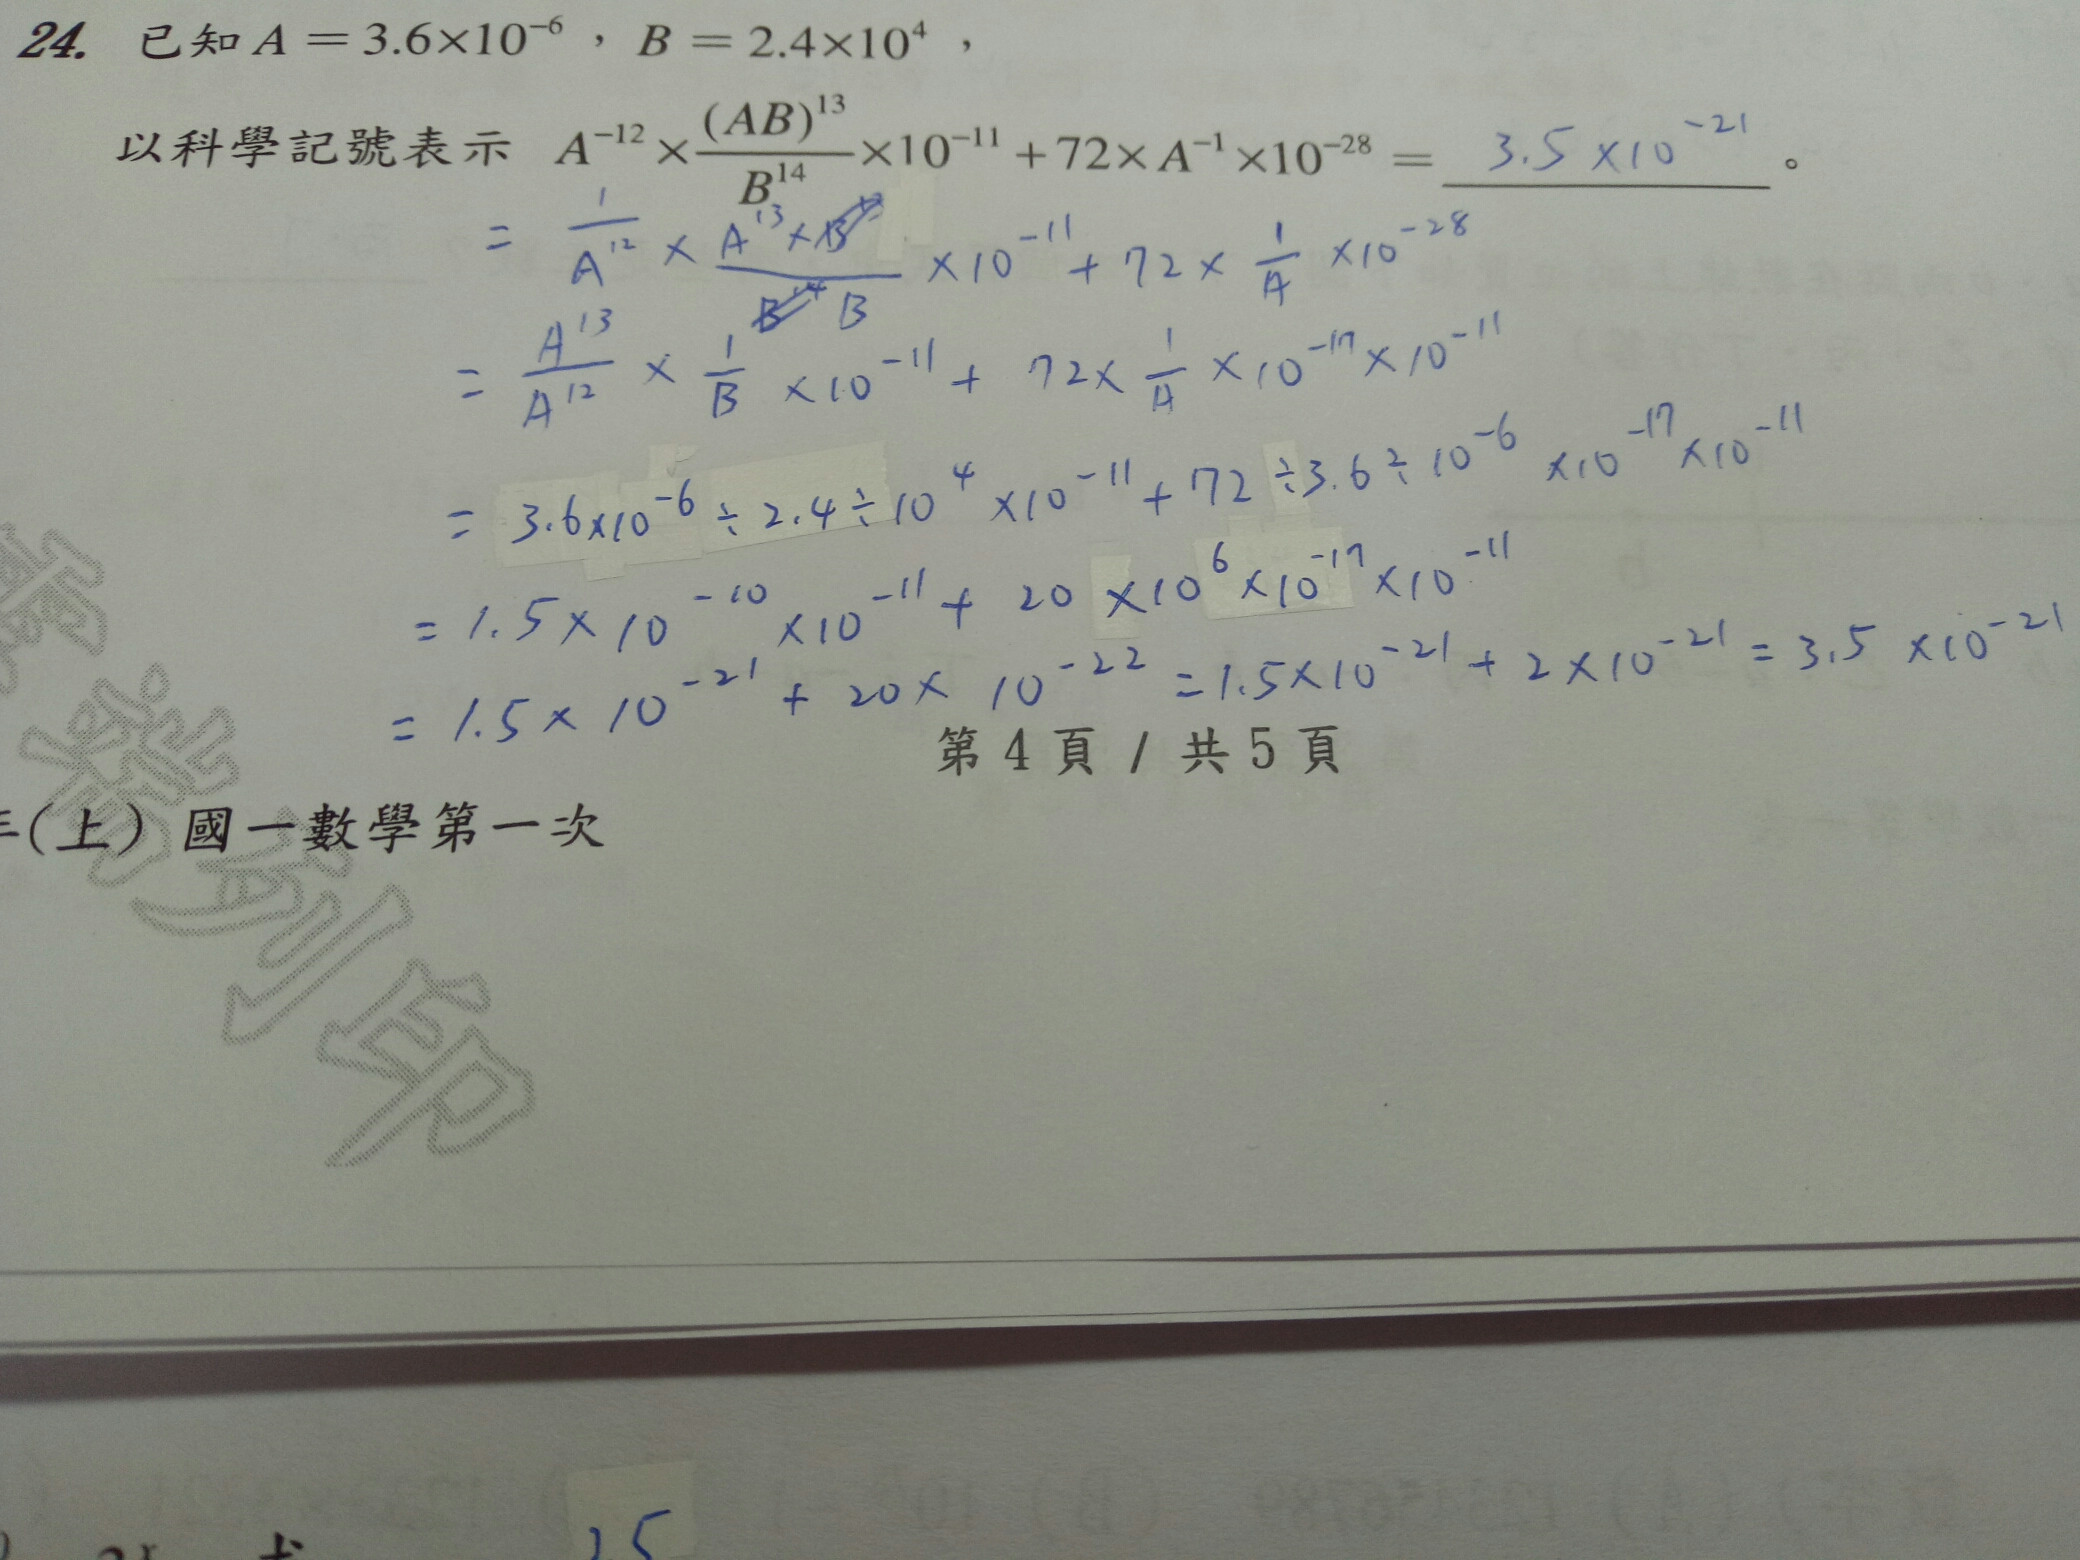 24. 已知 A = 3.6×10⁻⁶，B = 2.4×10⁴，
以科學記號表示 A⁻¹² × (AB)¹³/B¹⁴ ×10⁻¹¹ + 72×A⁻¹×10⁻²⁸ = 3.5×10⁻²¹。
= 1/A¹² × A¹³×B¹³/B¹⁴ B ×10⁻¹¹ + 72 × 1/A ×10⁻²⁸
= A¹³/A¹² × 1/B ×10⁻¹¹ + 72× 1/A ×10⁻¹⁷×10⁻¹¹
= 3.6×10⁻⁶ ÷ 2.4 ÷ 10⁴ ×10⁻¹¹ + 72 ÷3.6÷10⁻⁶ ×10⁻¹⁷×10⁻¹¹
= 1.5×10⁻¹⁰ ×10⁻¹¹ + 20 ×10⁶×10⁻¹⁷×10⁻¹¹
= 1.5×10⁻²¹ + 20×10⁻²² = 1.5×10⁻²¹ + 2×10⁻²¹ = 3.5×10⁻²¹
第 4 頁 / 共 5 頁
(上) 國一數學第一次